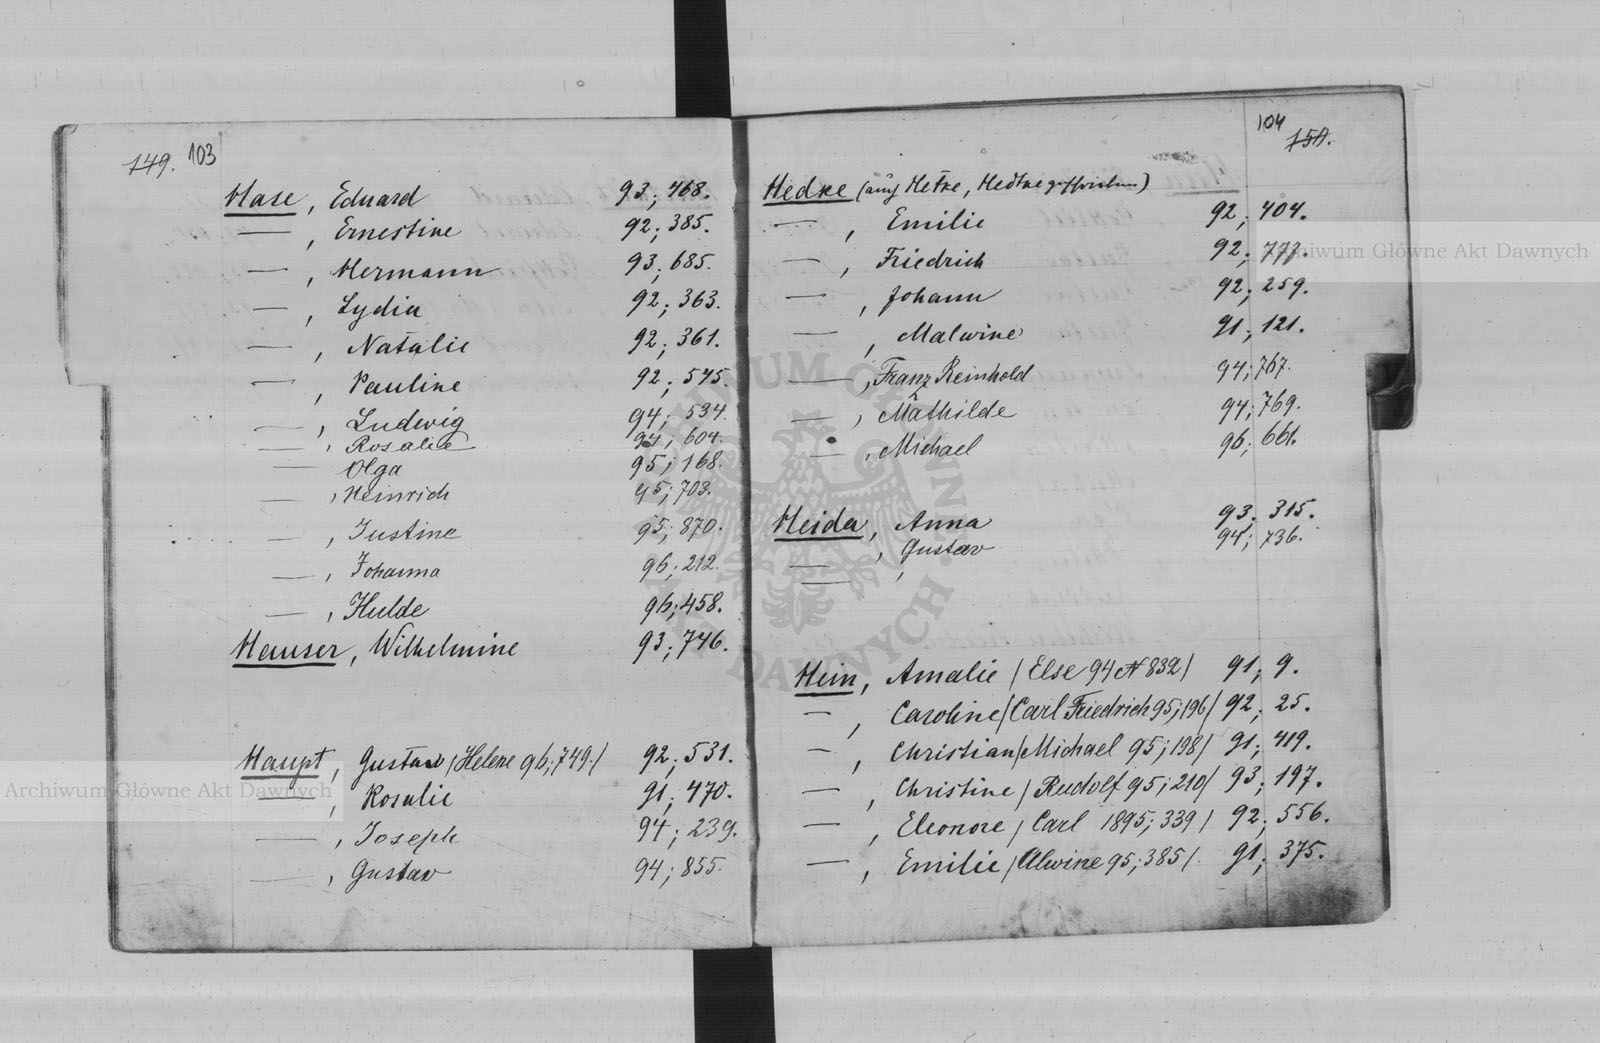 149. 103
Hase, Eduard 93; 468.
— , Ernestine 92; 385.
— , Hermann 93; 685.
— , Lydia 92; 363.
— , Natalie 92; 361.
— , Pauline 92; 545.
— , Ludwig 94; 534.
— , Rosalie 94; 604.
— Olga 95; 168.
— , Heinrich 95; 703.
— , Justine 95; 870.
— , Johanna 96; 212.
— , Hulde 96; 458.
Hauser, Wilhelmine 93; 746.
Haupt, Gustav /Helene 96; 749./ 92; 531.
— , Rosalie 91; 470.
— , Joseph 94; 239.
— , Gustav 94; 855.
104
150.
Hedke (auch Hetke, Hedtke geschrieben)
— , Emilie 92; 404.
— , Friedrich 92; 777.
— , Johann 92; 259.
— , Malwine 91; 121.
— , Franz Reinhold 94; 767.
— , Mathilde 94; 769.
— , Michael 96; 661.
Heida, Anna 93. 315.
— , Gustav 94; 736.
— ,
Hein, Amalie /Else 94 N 832/ 91; 9.
— , Caroline /Carl Friedrich 95; 196/ 92; 25.
— , Christian /Michael 95; 198/ 91; 419.
— , Christine /Rudolf 95; 210/ 93; 197.
— , Eleonore /Carl 1895; 339/ 92; 556.
— , Emilie /Alwine 95; 385/. 91; 375.
Archiwum Główne Akt Dawnych
Archiwum Główne Akt Dawnych
ARCHIWUM GŁÓWNE AKT DAWNYCH